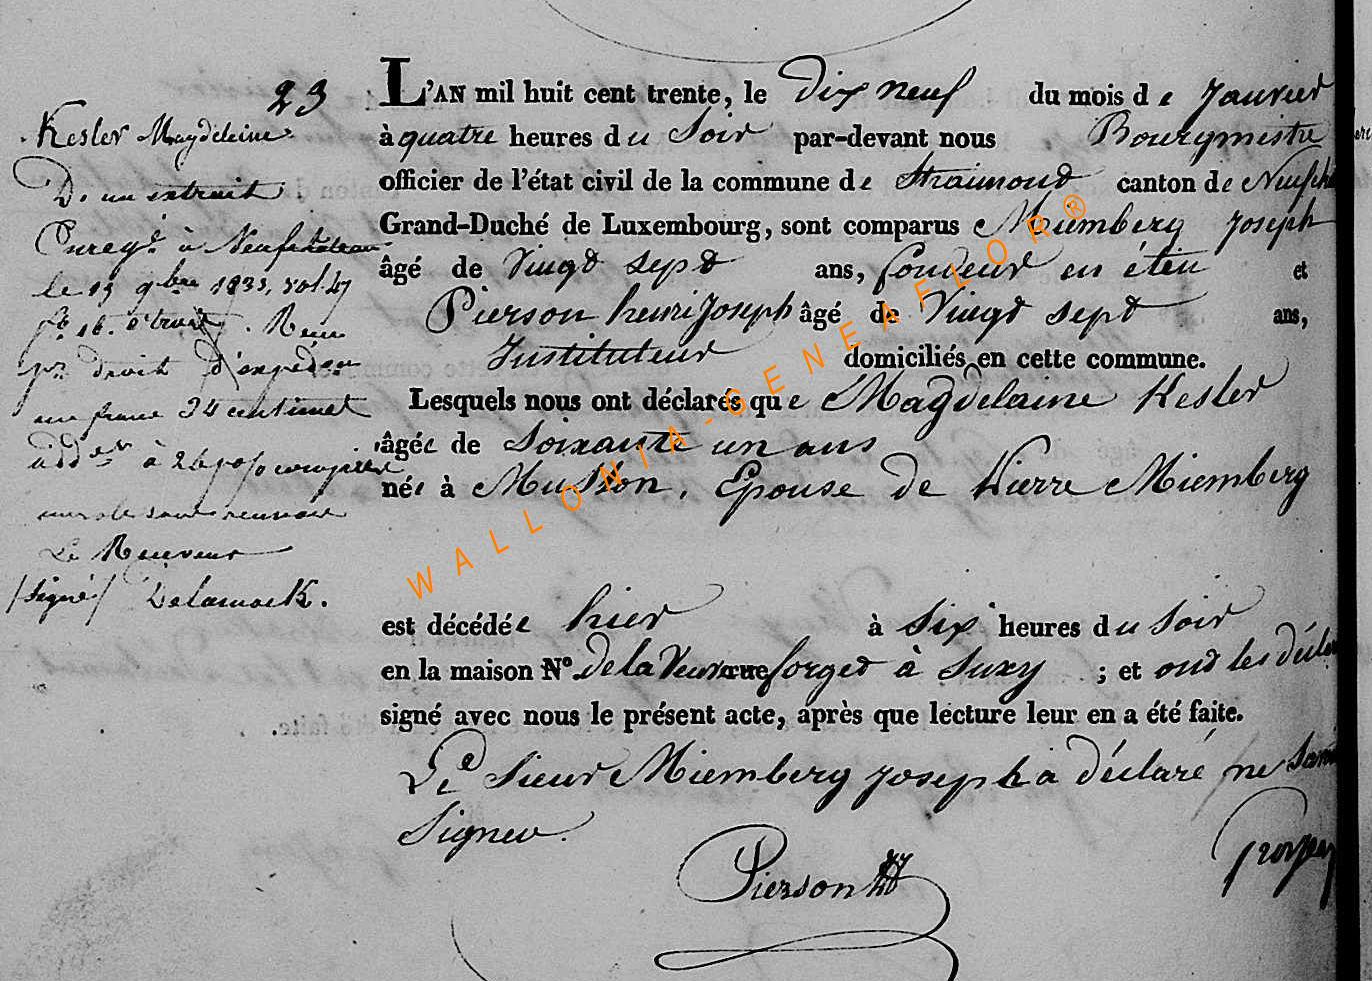 23
Kesler Magdeleine
De un extrait
Enregé à Neufchateau
le 15 9bre 1833, vol. 47
fo 16.
pr droit d'expéden
un franc 24 centimes
addels à 26 po/o compris
Le Receveur
/signé/ Delamock.
L'AN mil huit cent trente, le dix neuf du mois de Janvier
à quatre heures du Soir par-devant nous Bourgmestre
officier de l'état civil de la commune de Straimont canton de Neufch
Grand-Duché de Luxembourg, sont comparus Miemberg Joseph
âgé de Vingt sept ans, fondeur en étein et
Pierson henri Joseph âgé de Vingt sept ans,
Instituteur domiciliés en cette commune.
Lesquels nous ont déclarés que Magdelaine Kesler
âgée de Soixante un ans
née à Musson, Epouse de Pierre Miemberg
est décédée hier à Six heures du Soir
en la maison N° de la Veuve forget à Suxy ; et ont les décla
signé avec nous le présent acte, après que lecture leur en a été faite.
Le Sieur Miemberg Joseph a déclaré ne Savoir
Signer.
Pierson hj
WALLONIA-GENEAFLOR®